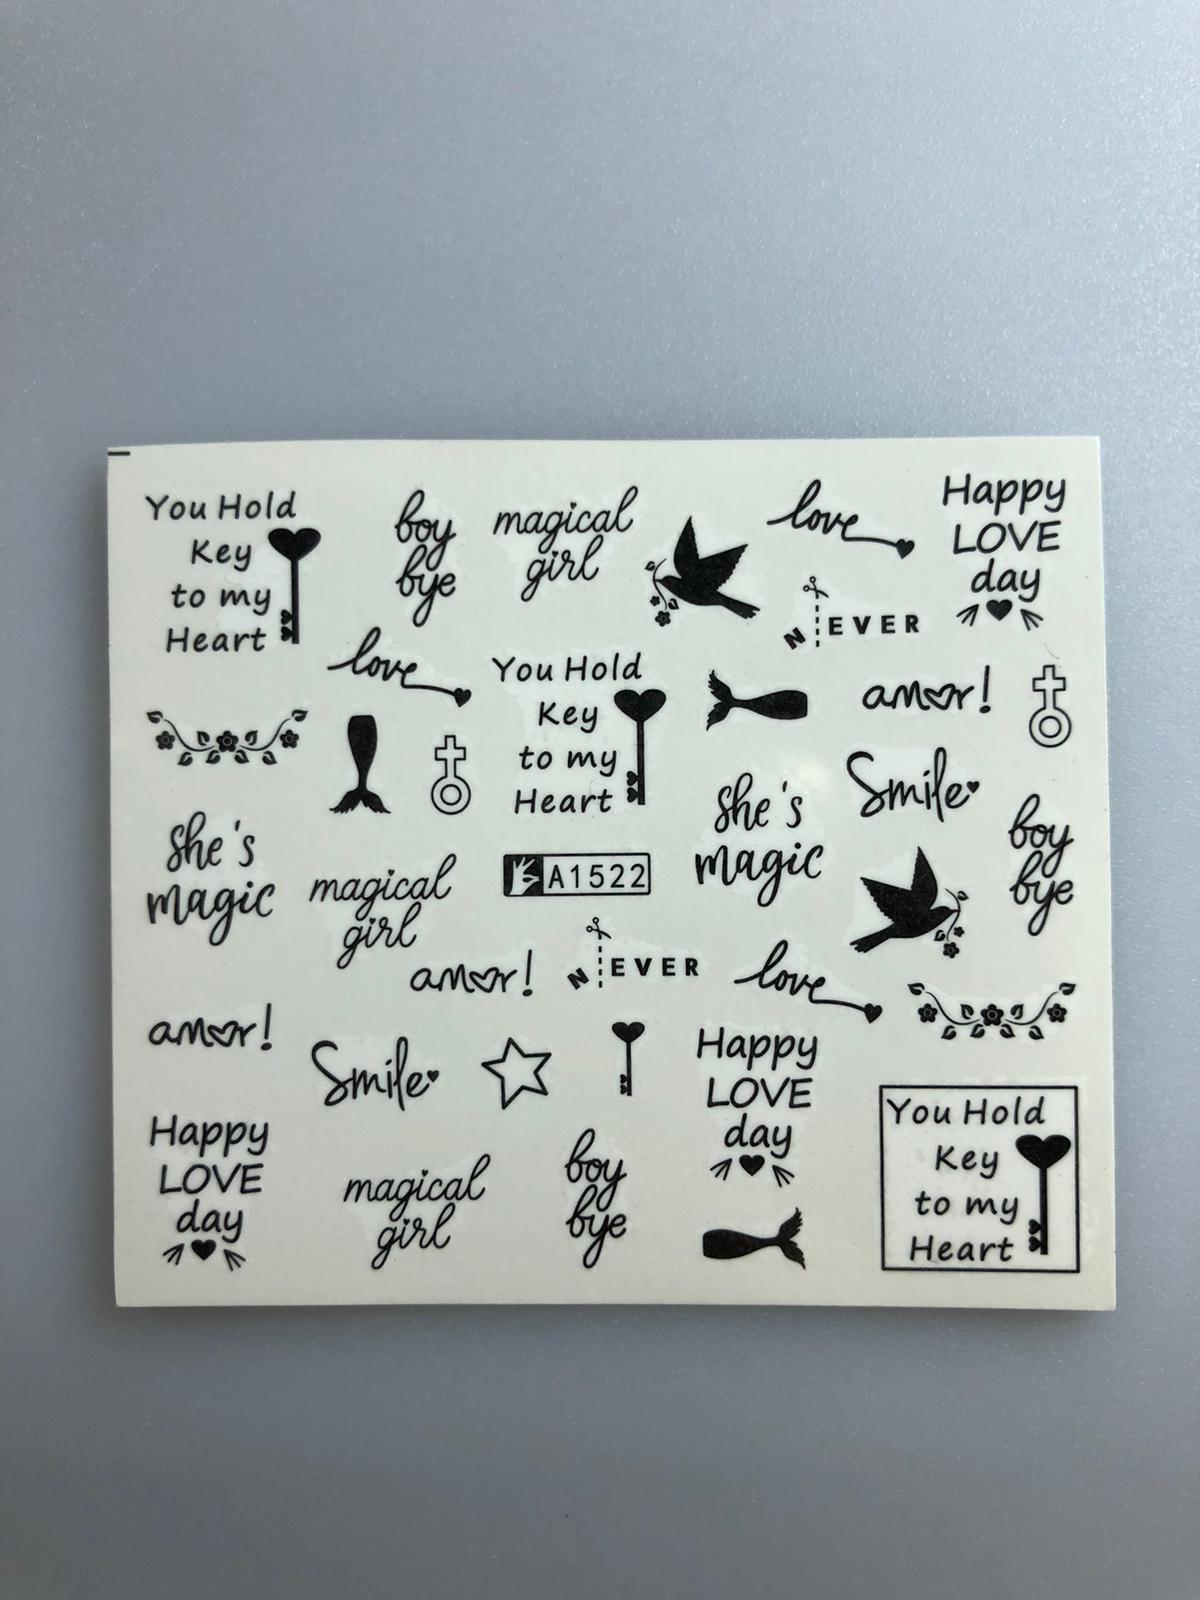 You Hold
Key
to my
Heart
boy
bye
magical
girl
love
Happy
LOVE
day
NEVER
love
You Hold
Key
to my
Heart
amor!
she's
magic
magical
girl
A1522
she's
magic
Smile
boy
bye
amor!
NEVER
love
amor!
Smile
Happy
LOVE
day
Happy
LOVE
day
magical
girl
boy
bye
You Hold
Key
to my
Heart